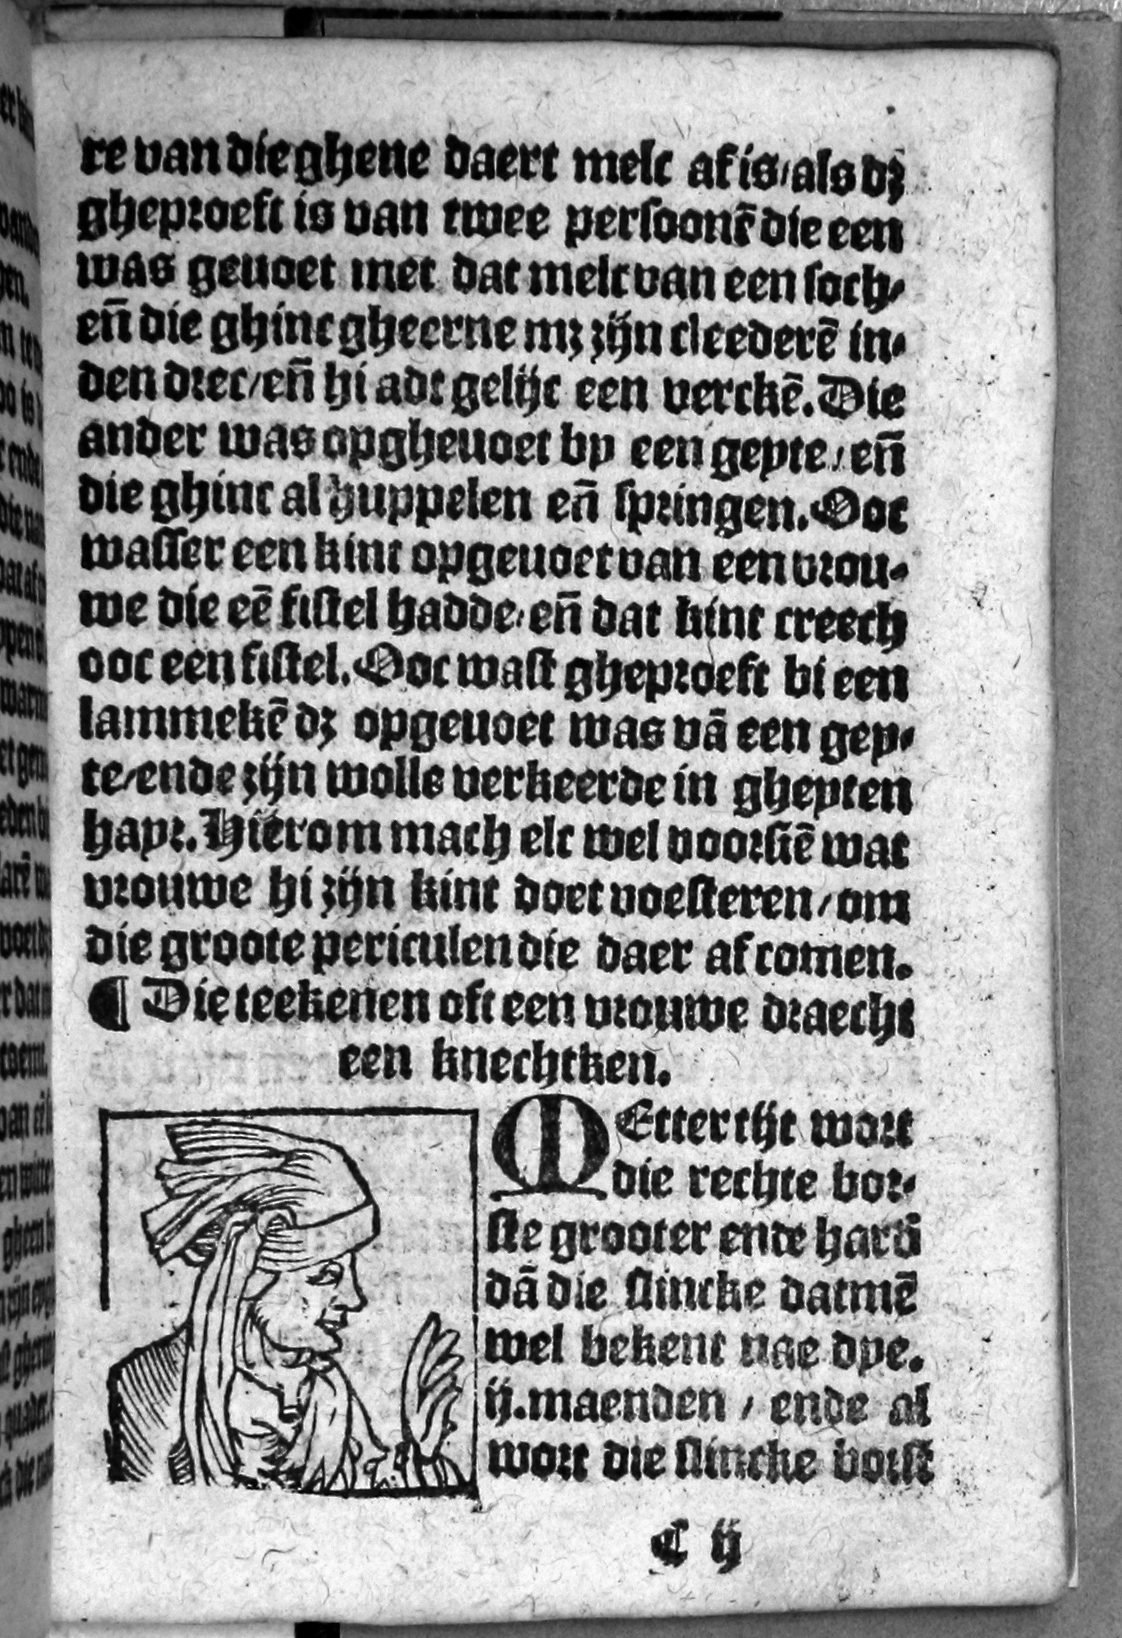 re van die ghene daert melc af is/als dꝫ
gheproeft is van twee persoonē die een
was geuoet met dat melc van een soch/
eñ die ghinc gheerne mꝫ zijn cleederē in-
den drec/eñ hi adt gelijc een verckē. Die
ander was opgheuoet by een geyte/eñ
die ghinc al huppelen eñ springen. Ooc
wasser een kint opgeuoet van een vrou-
we die eē fistel hadde/eñ dat kint creech
ooc een fistel. Ooc wast gheproeft bi een
lammekē dꝫ opgeuoet was vā een gey-
te/ende zijn wolle verkeerde in gheyten
hayr. Hierom mach elc wel voorsiē wat
vrouwe hi zijn kint doet voesteren/om
die groote periculen die daer af comen.
¶ Die teekenen oft een vrouwe draecht
een knechtken.
MEtter tijt wort
die rechte bor-
ste grooter ende harð
dā die slincke datmē
wel bekent nae dye.
ij.maenden / ende al
wort die slincke borst
C ij